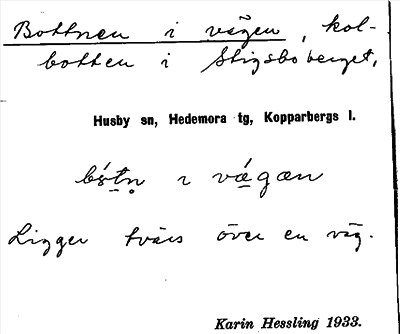 Bottnen i vägen, kol-
botten i Stigsboberget,
Husby sn, Hedemora tg, Kopparbergs l.
i vǽgæn
Ligger tvärs över en väg.
Karin Hessling 1933.